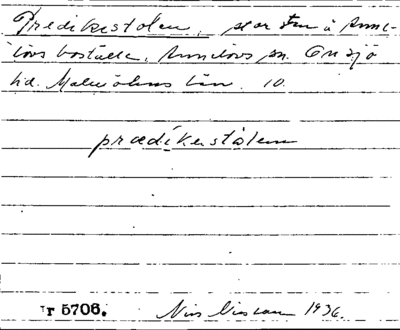 Predikestolen, stor sten å Annelövs boställe, Annelövs sn. Onsjö
hd. Malmöhus län. 10.
prædikenstålenn
Ir 5706. Nils Nilsson 1936.